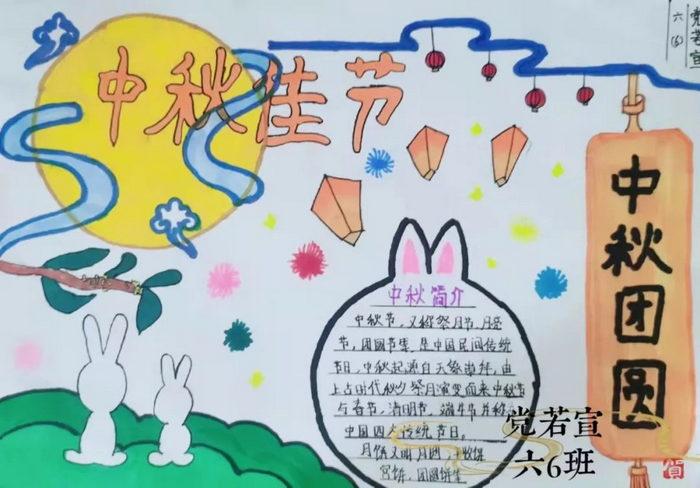 中秋佳节
党若宣
六(6)
中秋团圆
中秋简介
中秋节，又称祭月节、月
节、团圆节等，是中国民间传统
节日，中秋起源自天象崇拜，由
上古时代秋夕祭月演变而来中秋节
与春节、清明节、端午节并称
中国四大传统节日。
月饼又
宫饼、团圆饼
党若宣
六6班